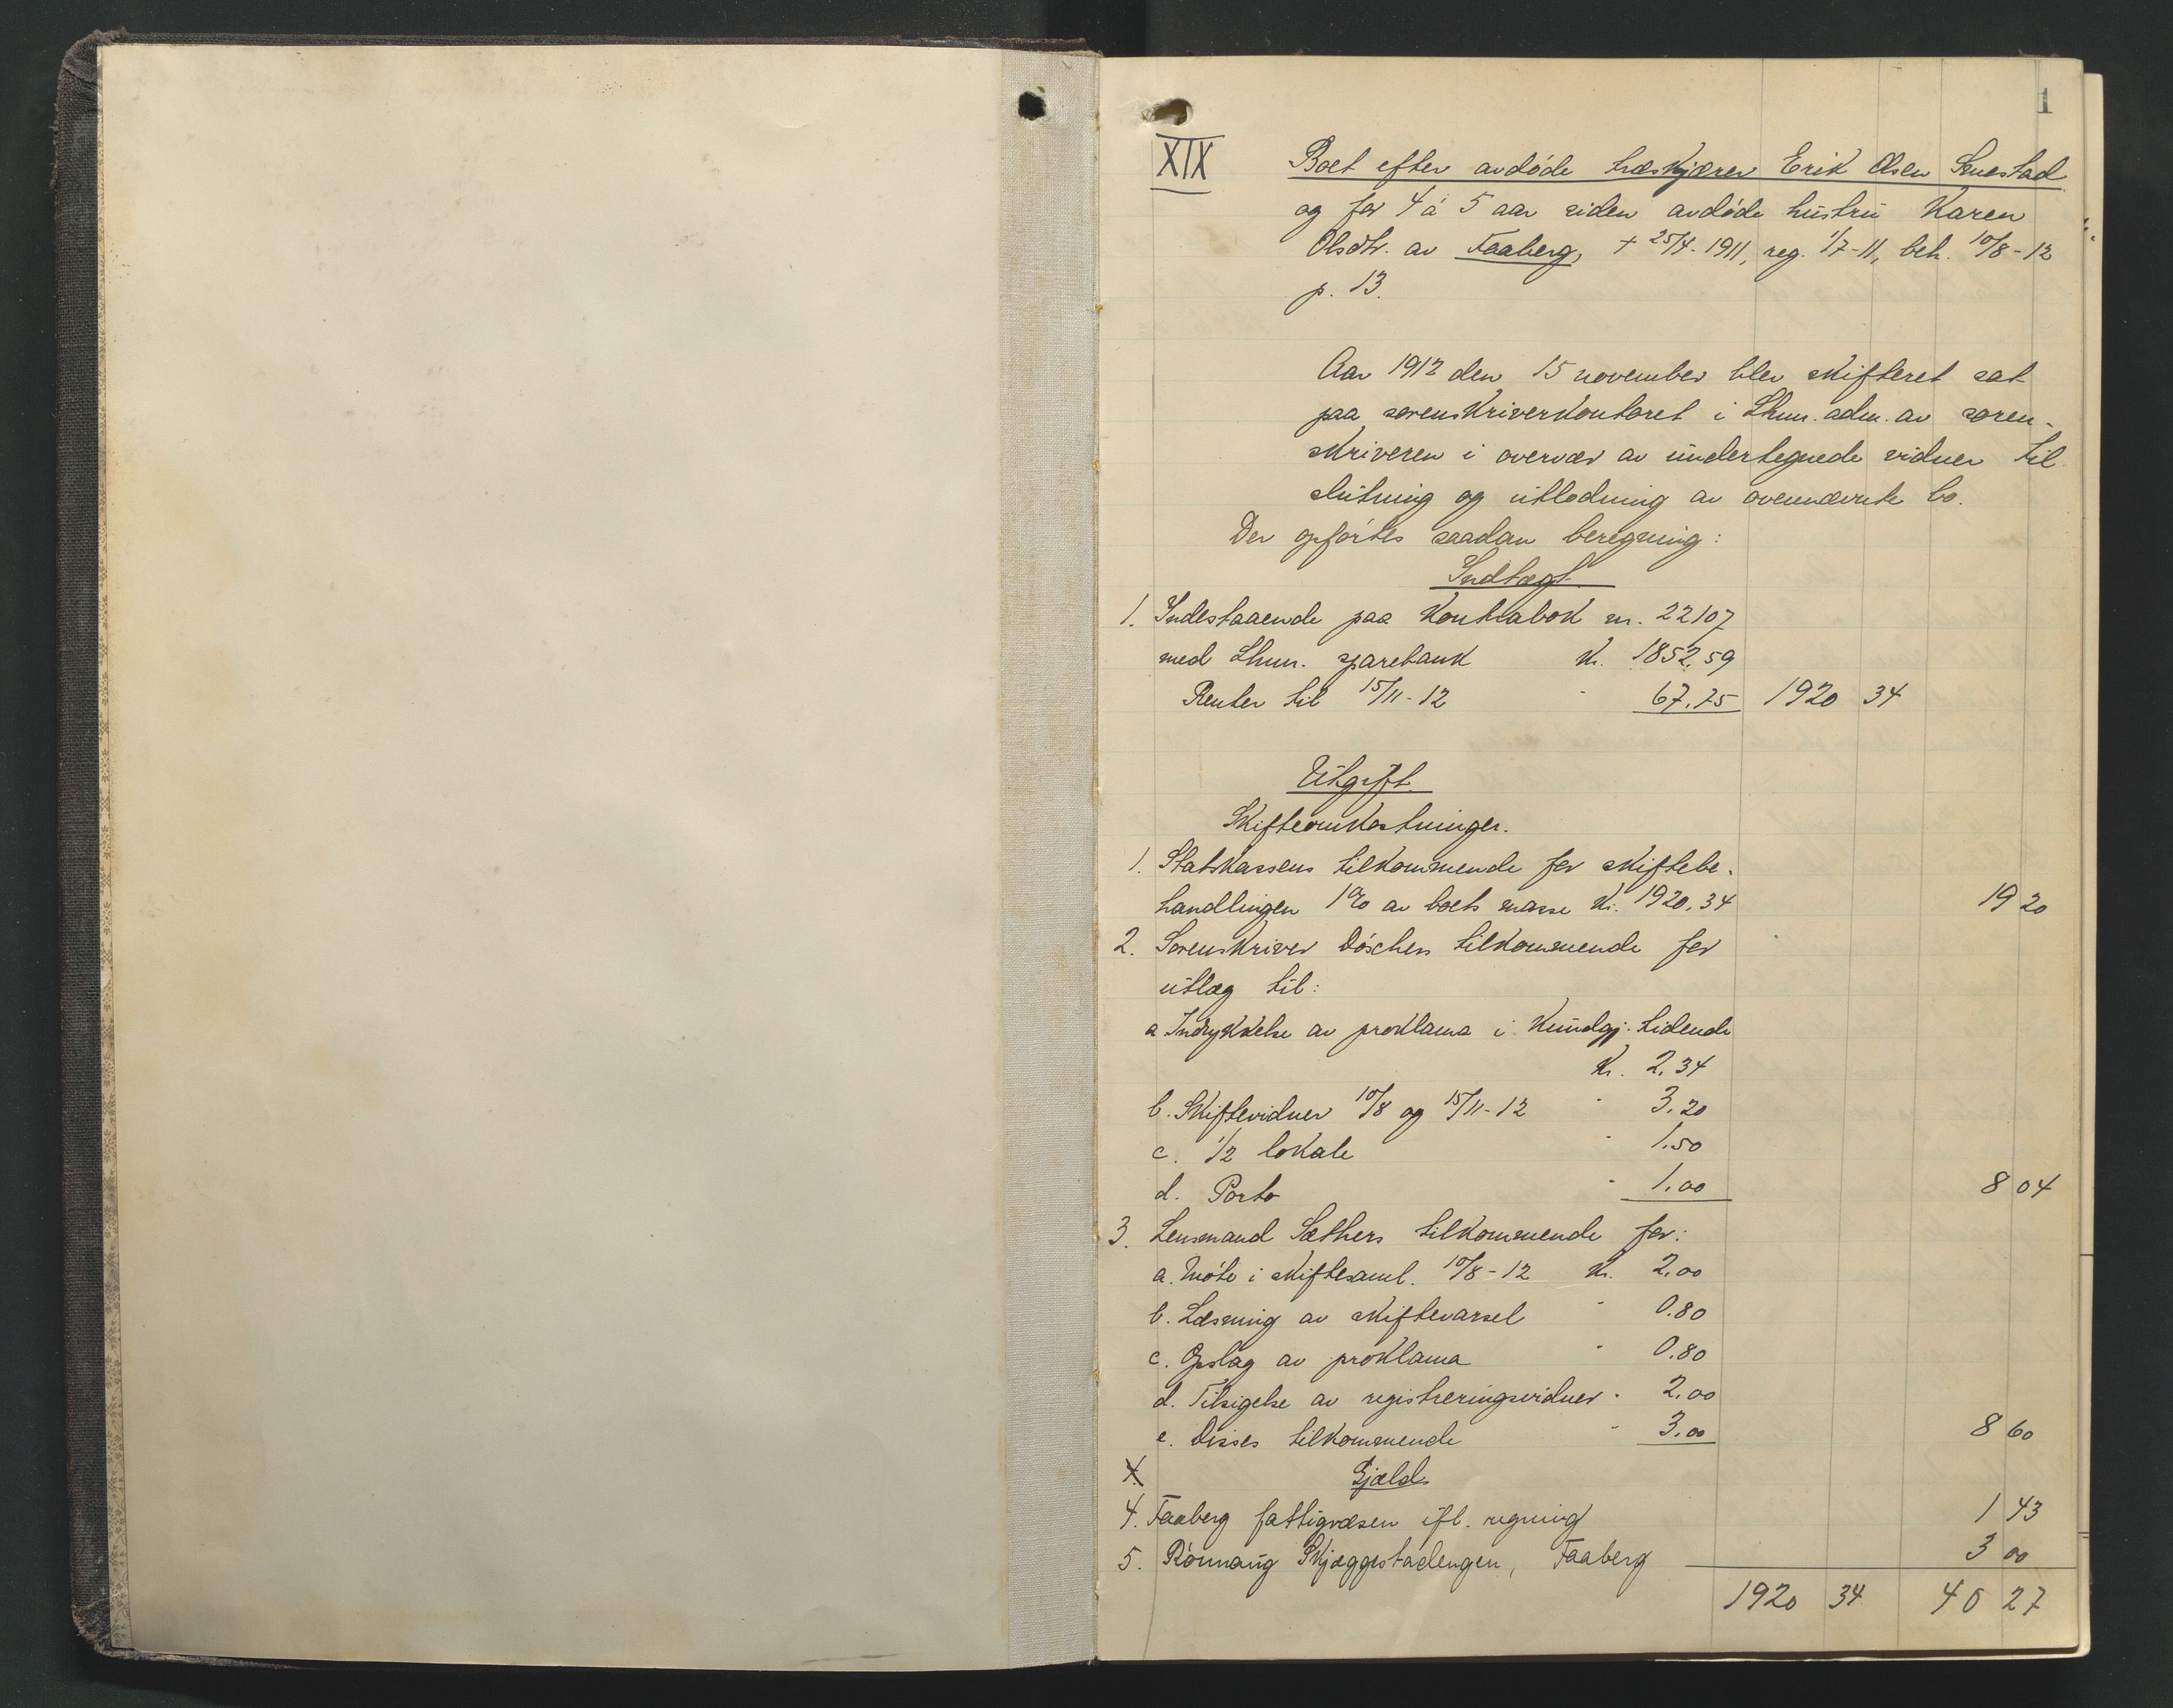 1
XIX
Boet efter avdøde træskjærer Erik Olsen
og for 4 á 5 aar siden avdøde hustru Karen
Olsdtr. av Faaberg, + 25/4-1911, reg. 1/7-11, beh. 10/8-12
p. 13.
Aar 1912 den 15 november blev skifteret sat
paa sorenskriverkontoret i Lhmr. adm. av soren-
skriveren i overvær av undertegnede vidner til
slutning og utlodning av ovennævnte bo.
Der opførtes saadan beregning:
Indtægt
1. Indestaaende paa Kontrabok nr. 22107
med Lhmr. sparebank Kr. 1852,59
Renter til 15/11-12 " 67.75 1920 34
Utgift
Skifteomkostninger.
1. Statskassens tilkommende for skiftebe-
handlingen 1% av boets masse Kr. 1920.34 19 20
2. Sorenskriver Döschers tilkommende for
utlæg til:
a Indrykkelse av proklama i Kundgj. tidende
Kr. 2.34
b. Skiftevidner 10/8 og 15/11-12 " 3.20
c. 1/2 lokale " 1.50
d. Porto " 1.00 8 04
3. Lensmand Sæthers tilkommende for:
a. Møte i skiftesaml. 10/8-12 Kr. 2.00
b. Læsning av skiftevarsel " 0.80
c. Opslag av proklama " 0.80
d. Tilsigelse av registreringsvidner " 2.00
e. Disses tilkommende " 3.00 8 60
4. Gjæld
4. Faaberg fattigvæsen ifl. regning 1 43
5. Rönnaug Skjæggestadengen, Faaberg 3 00
1920 34 40 27